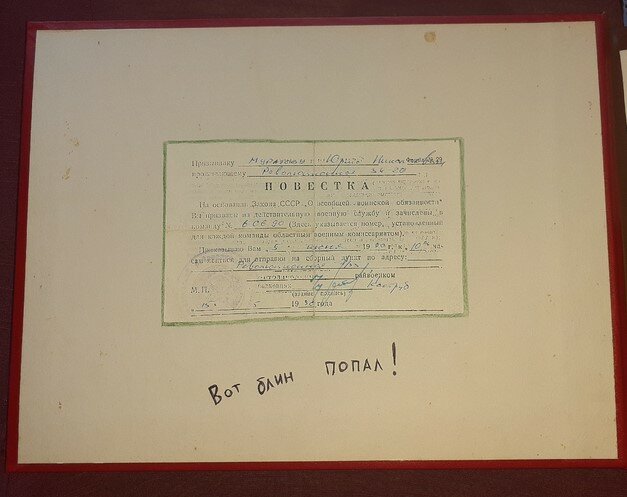 Призывнику Юрий
проживающему Революционная 36 20
ПОВЕСТКА
На основании Закона СССР „О всеобщей воинской обязанности“
Вы призваны на действительную военную службу и зачислены в
команду № 6 06 90 (Здесь указывается номер, установленный
для каждой команды областным военным комиссариатом).
Приказываю Вам 5 июня 1990 г. к 10 ча-
сам явиться для отправки на сборный пункт по адресу:
райвоенком
М. П.
(звание, подпись)
5 1990 года
Вот блин попал!